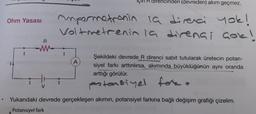 direncinden (devreden) akım geçmez.
Ohm Yasası
Ampermetrenin iç direnci yok!
Voltmetrenin iç direnci çok!
R
A
V
Şekildeki devrede R direnci sabit tutularak üretecin potansiyel farkı arttırılırsa, akımında büyüklüğünün aynı oranda
arttığı görülür.
potansiyel fark
• Yukarıdaki devrede gerçekleşen akımın, potansiyel farkına bağlı değişim grafiği çizelim.
Potansiyel fark